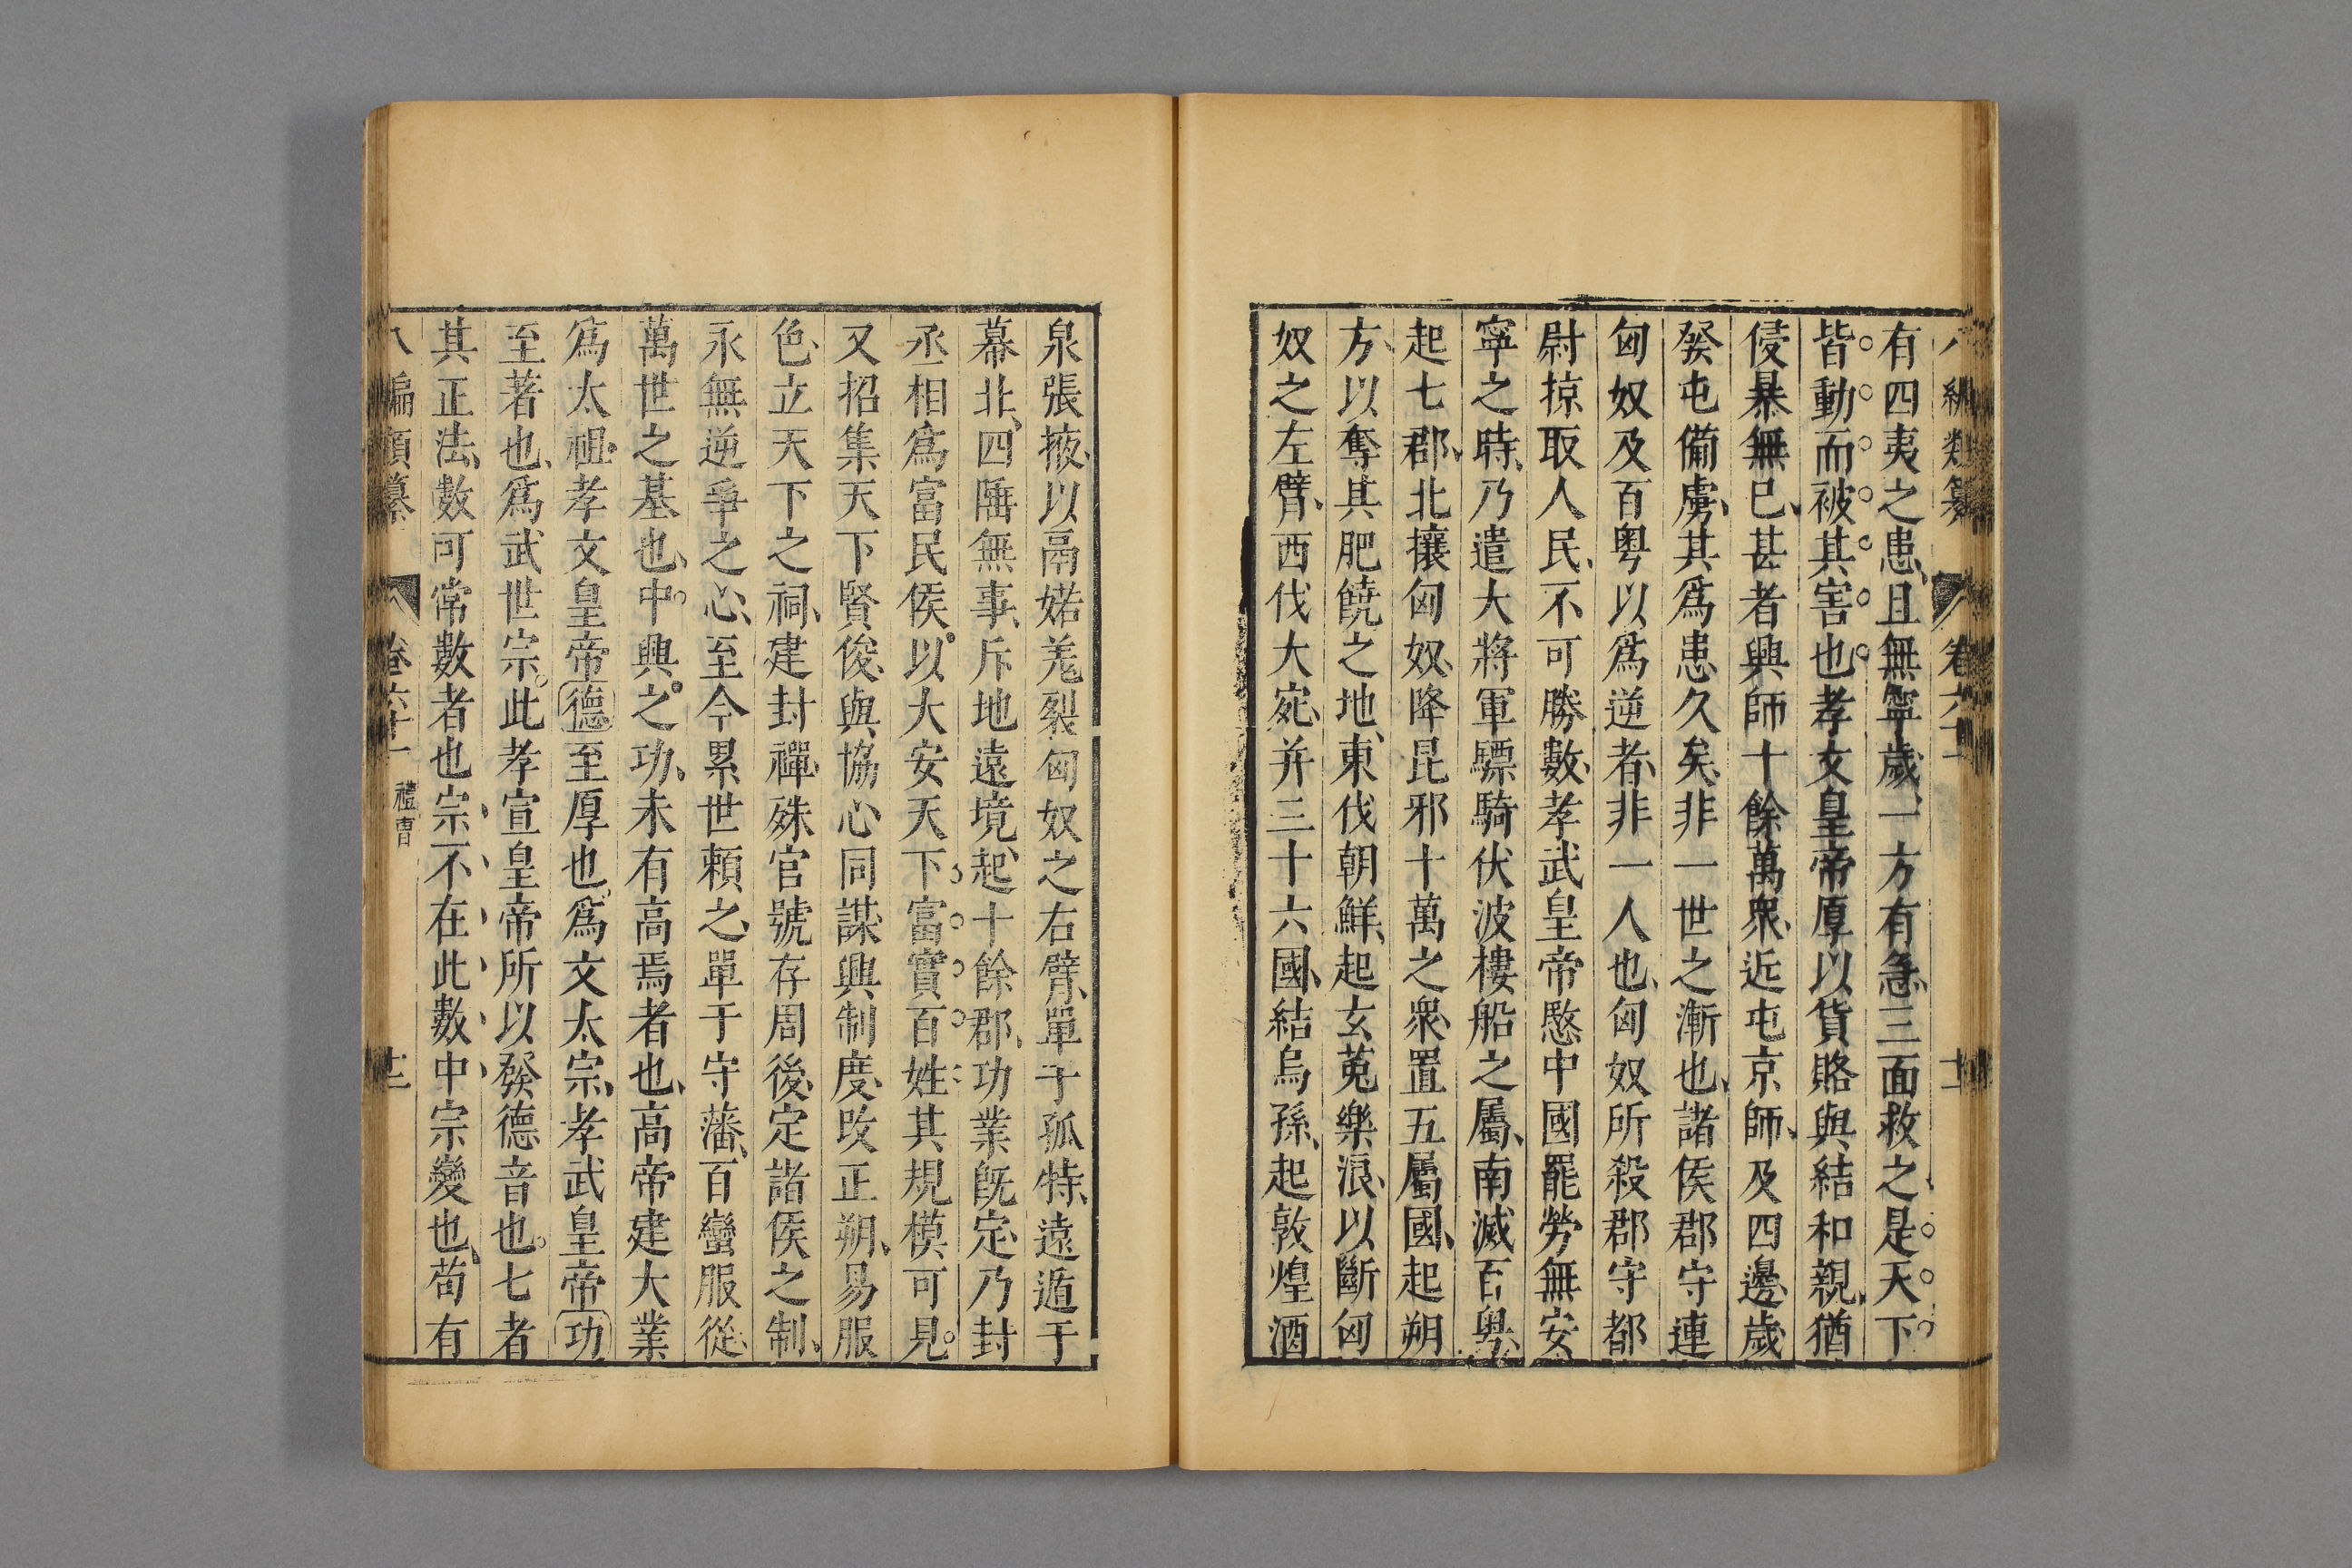 八編類纂 卷六十一 十一
有四夷之患、且無寧歲、一方有急、三面救之、是天下
皆動而被其害也、孝文皇帝厚以貨賂與結和親、猶
侵暴無已、甚者興師十餘萬衆、近屯京師、及四邊、歲
發屯備虜、其爲患久矣、非一世之漸也、諸侯郡守連
匈奴及百粵以爲逆者、非一人也、匈奴所殺郡守都
尉掠取人民、不可勝數、孝武皇帝愍中國罷勞無安
寧之時、乃遣大將軍驃騎伏波樓船之屬、南滅百粵、
起七郡、北攘匈奴、降昆邪十萬之衆、置五屬國、起朔
方、以奪其肥饒之地、東伐朝鮮、起玄菟樂浪、以斷匈
奴之左臂、西伐大宛、并三十六國、結烏孫、起敦煌酒
泉張掖、以鬲婼羌裂匈奴之右臂、單于孤特、遠遁于
幕北、四陲無事、斥地遠境、起十餘郡、功業旣定、乃封
丞相爲富民侯、以大安天下、富實百姓、其規模可見。
又招集天下賢俊、與協心同謀、興制度、改正朔、易服
色、立天下之祠、建封禪、殊官號、存周後、定諸侯之制、
永無逆爭之心、至今累世賴之、單于守藩、百蠻服從、
萬世之基也、中興之功、未有高焉者也、高帝建大業
爲太祖、孝文皇帝德至厚也、爲文太宗、孝武皇帝功
至著也、爲武世宗。此孝宣皇帝所以發德音也。七者
其正法、數可常數者也、宗不在此數中、宗變也、苟有
八編類纂 卷六十一 禮曹 十二